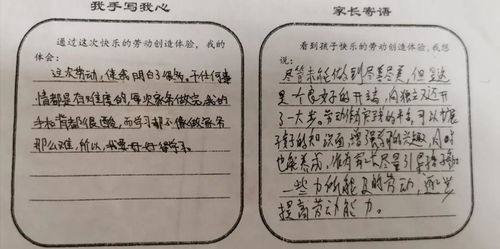 我手写我心
通过这次快乐的劳动创造体验，我的
体会：
这次劳动，使我明白了很多。干任何事
情都是有难度的，每次家务做完，我的
手和背都很酸，而学习却不像做家务
那么难，所以，我要好好得学习。
家长寄语
看到孩子快乐的劳动创造体验，我想
说：
尽管未能做到尽善尽美，但这
是一个良好的开端，向独立又迈开
了一大步。劳动作为实践的平台，可以扩展
孩子的知识面，增强孩子的兴趣，同时
也能养成，尽量引导孩子参加
一些力所能及的劳动，逐步
提高劳动能力。